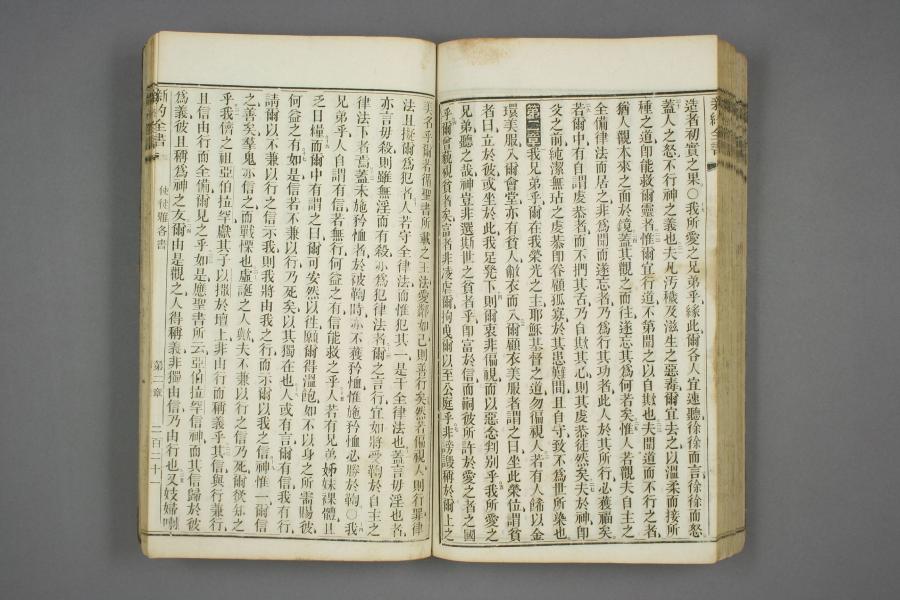 新約全書
造者初實之果〇我所愛之兄弟乎緣此爾各人宜速聽徐徐而言徐徐而怒
蓋人之怒不行神之義也夫凡汚穢及滋生之惡毒爾宜去之以溫柔而接所
種之道即能救爾靈者惟爾宜行道不第聞之以自欺也夫聞道而不行之者
猶人觀本來之面於鏡蓋其觀之而往遂忘其為何若矣惟人若觀夫自主之
全備律法而居之非為聞而遂忘者乃為行其功者此人於其所行必獲福矣
若爾中有自謂虔恭者而不捫其舌乃自欺其心則其虔恭徒然矣夫於神即
父之前純潔無玷之虔恭即眷顧孤寡於其患難間且自守致不為世所染也
第二章我兄弟乎爾在我榮光之主耶穌基督之道勿徧視人若有人飾以金
環美服入爾會堂亦有貧人敝衣而入爾顧衣美服者謂之曰坐此榮位謂貧
者曰立於彼或坐於此我足凳下則爾衷非徧視而以惡念判別乎我所愛之
兄弟聽之哉神豈非選斯世之貧者乎即富於信而嗣彼所許於愛之者之國
乎爾曾藐視貧者矣富者非凌虐爾拘曳爾以至公庭乎非謗讟稱於爾上之
美名乎爾若循聖書所載之王法愛鄰如己則善行矣然若徧視人則行罪律
法且擬爾為犯者人若守全律法而惟犯其一是干全律法也蓋言毋淫也者
亦言毋殺則雖無淫而有殺亦為犯律法者爾之言行宜如將受鞫於自主之
律法下者焉蓋未施矜恤者於被鞫時亦不獲矜恤惟施矜恤必勝於鞫〇我
兄弟乎人自謂有信若無行何益之有信能救之乎人若有兄弟姊妹裸體且
乏日糧而爾中有謂之曰爾可安然以往願爾得溫飽如不以身之所需賜彼
何益之有如是信若不兼以行乃死矣以其獨在也人或有言爾有信我有行
請爾以不兼以行之信示我則我將由我之行而示爾以我之信神惟一爾信
之善矣羣鬼亦信之而戰慄也虛誕之人歟夫不兼以行之信乃死爾欲知之
乎我儕之祖亞伯拉罕獻其子以撒於壇上非由行而稱義乎其信與行兼行
且信由行而全備爾見之乎如是應聖書所云亞伯拉罕信神而其信歸於彼
為義彼且稱為神之友爾由是觀之人得稱義非獨由信乃由行也又妓婦喇
新約全書
使徒雅各書
第二章
二百二十一